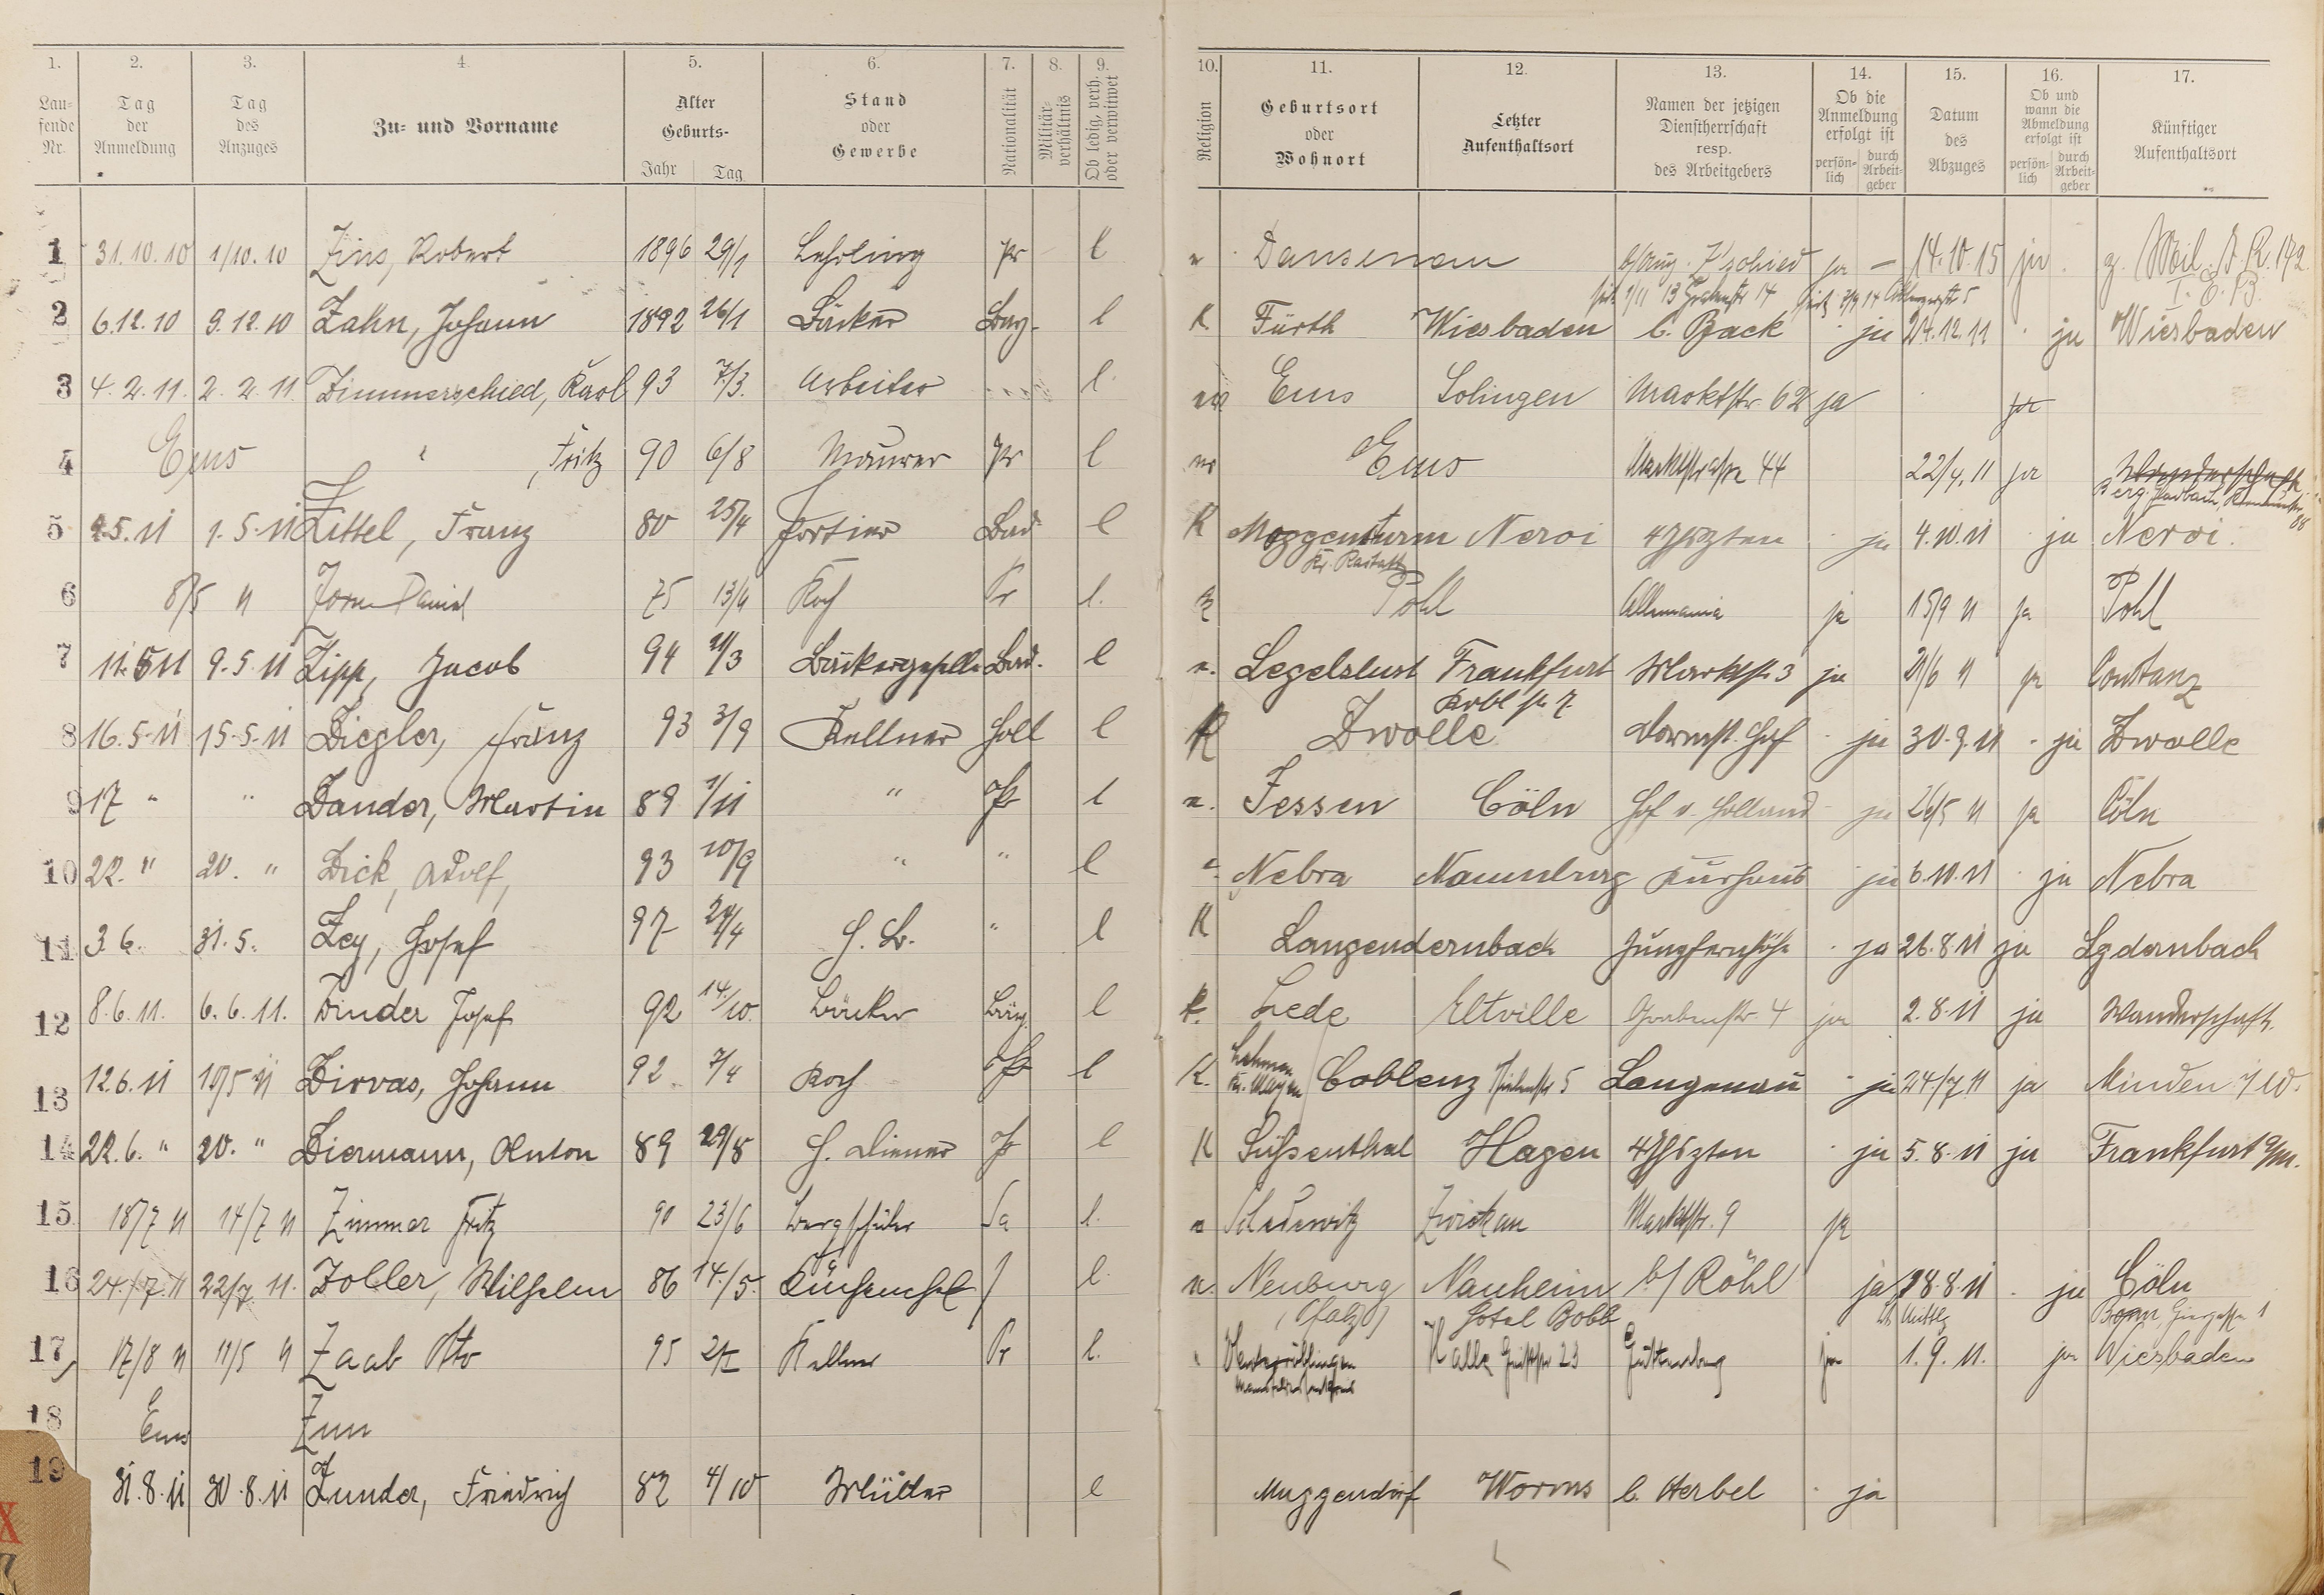 1. 2. 3. 4. 5. 6. 7. 8. 9. 10. 11. 12. 13. 14. 15. 16. 17.
Lau-
fende
Nr.
Tag
der
Anmeldung
Tag
des
Anzuges
Zu- und Vorname
Alter
Geburts-
Jahr Tag
Stand
oder
Gewerbe
Nationalität
Militär-
verhältnis
Ob ledig, verh.
oder verwitwet
Religion
Geburtsort
oder
Wohnort
Letzter
Aufenthaltsort
Namen der jetzigen
Dienstherrschaft
resp.
des Arbeitgebers
Ob die
Anmeldung
erfolgt ist
persön-
lich
durch
Arbeit-
geber
Datum
des
Abzuges
Ob und
wann die
Abmeldung
erfolgt ist
persön-
lich
durch
Arbeit-
geber
Künftiger
Aufenthaltsort
1 31.10.10 1/10.10 Zins, Robert 1896 29/1 Lehrling Pr l Dausenau ja — 14.10.15 ja z. Mil. I.R. 172
I. E. B.
2 6.12.10 9.12.10 Zahn, Johann 1892 26/1 Bäcker Bay. l K Fürth Wiesbaden b. Back ja 24.12.11 ja Wiesbaden
3 4.2.11. 2.2.11 Zimmerschied, Karl 93 7/3. Arbeiter l. ev Ems Solingen Marktstr. 62 ja ja
4 Ems " , Fritz 90 6/8 Maurer Pr l Ems Marktstrasse 44 22/4.11 ja Wanderschaft
5 1.5.11 1.5.11 Zittel, Franz 80 25/4 Portier Bad l K Muggensturm Neroi 4 Jhrzten ja 4.10.11 ja Neroi.
Kr. Rastatt
6 8/5 11 Zorn Daniel 75 13/4 Koch Pr l. Pohl Allemania ja 15/9 11 ja Pohl
7 11.5.11 9.5.11 Zipp, Jacob 94 11/3 Bäckergeselle Bad. l Legelshurst Frankfurt Marktstr. 3 ja 21/6 11 ja Constanz
8 16.5.11 15.5.11 Ziegler, Franz 93 3/9 Kellner Holl l K Zwolle Darmst. Hof ja 30.9.11 ja Zwolle
9 17 " " Zander, Martin 89 1/11 " Pr l Jessen Cöln Hof v. Holland ja 26/5 11 ja Cöln
10 22. " 20. " Zick, Adolf, 93 10/9 " " l Nebra Naumburg Kurhaus ja 6.10.11 ja Nebra
11 3.6. 31.5. Zey, Josef 97 24/4 H. B. " l K Langendernbach Jungfernhöhe ja 26.8.11 ja Lgdernbach
12 8.6.11. 6.6.11. Zinder Josef 92 14./10. Bäcker Bay. l k. Lede Eltville Grabenstr. 4 ja 2.8.11 ja Wanderschaft.
13 12.6.11 10/5 11 Zirvas, Johann 92 7/4 Koch Pr l K. Lehmen
Kr. Mayen Coblenz 5 Langenau ja 24./7 11 ja Minden i/W.
14 22.6. " 20. " Ziermann, Anton 89 29/8 H. Diener Pr l K Süßenthal Hagen 4 Jhrzten ja 5.8.11 ja Frankfurt a/M.
15 18/7 11 14/7 11 Zimmer Fritz 90 23/6 Bergschüler Sa l. Schedewitz Zwickau Marktstr. 9 ja
16 24./7.11 22/7 11. Zoller, Wilhelm 86 14./5. Küchenchef l. Neuburg Nauheim b/ Röhl ja 18.8.11 ja Cöln
(Pfalz) Hotel Bobb
17 17/8 11 11/5 11 Zaab Otto 95 Kellner Pr l. Halle 23 ja 1.9.11. ja Wiesbaden
18 Ems Zun
19 31.8.11 30.8.11 Zunder, Friedrich 82 4/10 Müller l Muggendorf Worms b. Herbel ja